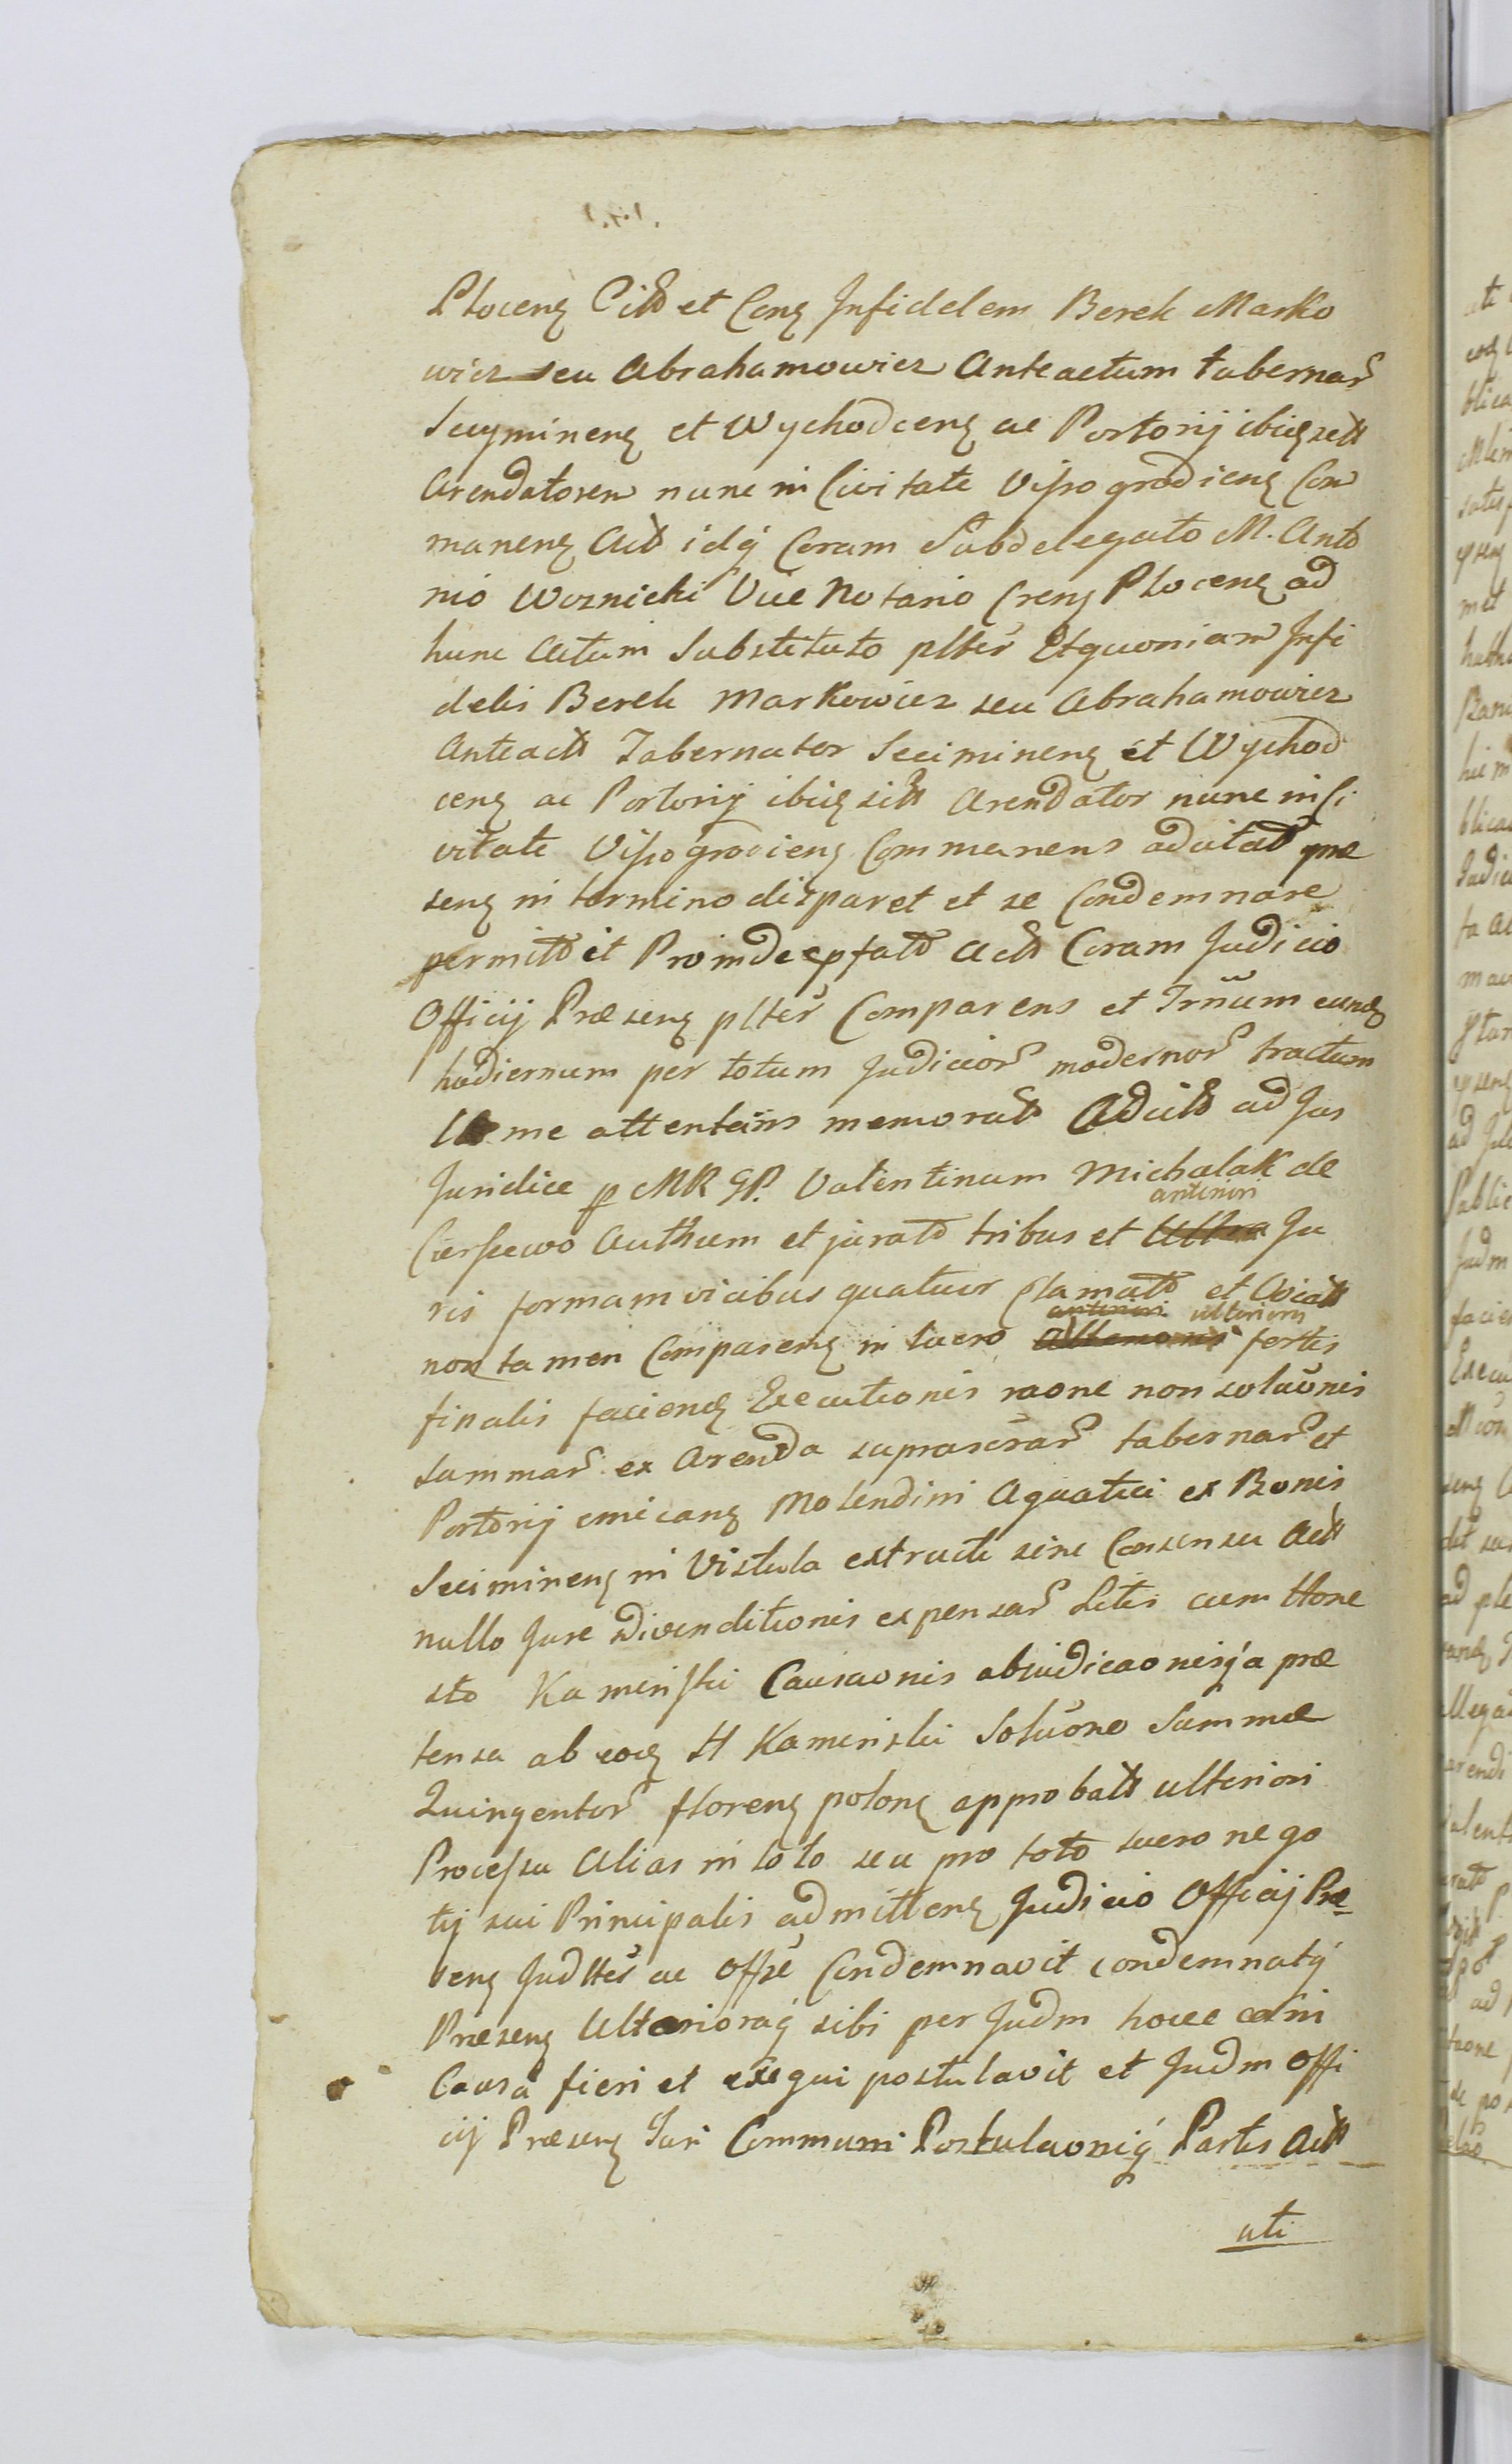 Plocenꝫ Citt et Conꝫ Infidelem Berek Marko
wicz seu Abrahamowicz Anteactum tabernar
Secyminenꝫ et Wychodcenꝫ ac Portorij ibiꝫ sitt
Arendatorem nunc in Civitate Vissogrodienꝫ Com
manenꝫ Act idq Coram Subdelegato M. Anto
nio Woznicki Vice Notario Crenꝫ Plocenꝫ ad
hunc Actum Substituto plter Et quoniam Infi
delis Berek Markowicz seu Abrahamowicz
Anteact Tabernator Seciminenꝫ et Wychod
cenꝫ ac Portorij ibiꝫ sitt Arendator nunc in Ci
vitate Vissogrodienꝫ Commanens adcitat præ
senꝫ in termino disparet et se Condemnare
permitt it Proinde epfato Act Coram Judicio
Officij Præsenꝫ plter Comparens et Trnum eundꝫ
hodiernum per totum Judicior modernor tractum
me attentans memorat Adcitt ad Jus
Juridice p MR GP. Valentinum Michalak de
antiniri
Cierszewo Authum et jurato tribus et Ultra Ju
ris formam vicibus quatuor Clamato et Avocatt
antiniri ulterioris
non tamen Comparenꝫ in lucro fortis
finalis faciendꝫ Executionis raone non soluonis
summar ex Arenda suprascrar tabernar et
Portorij emicanꝫ Molendini Aquatici ex Bonis
Seciminenꝫ in Vistula extructi sine Consensu Act
nullo Jure Divenditionis expensar Litis cum Hone
sto Kaminski Causaonis abiudicaonisq a præ
tensa ab eodꝫ H Kaminski Soluone Summæ
Quingentor florenꝫ polonꝫ approbatt ulteriori
Processu Alias in toto seu pro toto lucro nego
tij sui Principalis admittenꝫ Judicio Officij Præ
senꝫ Judlter ac Offse Condemnavit condemnatq
Præsenꝫ Ulterioraq sibi per Judm hocce in
Causa fieri et exequi postulavit et Judm Offi
cij Præsenꝫ Juri Communi Postulaoniq Partis Act
uti